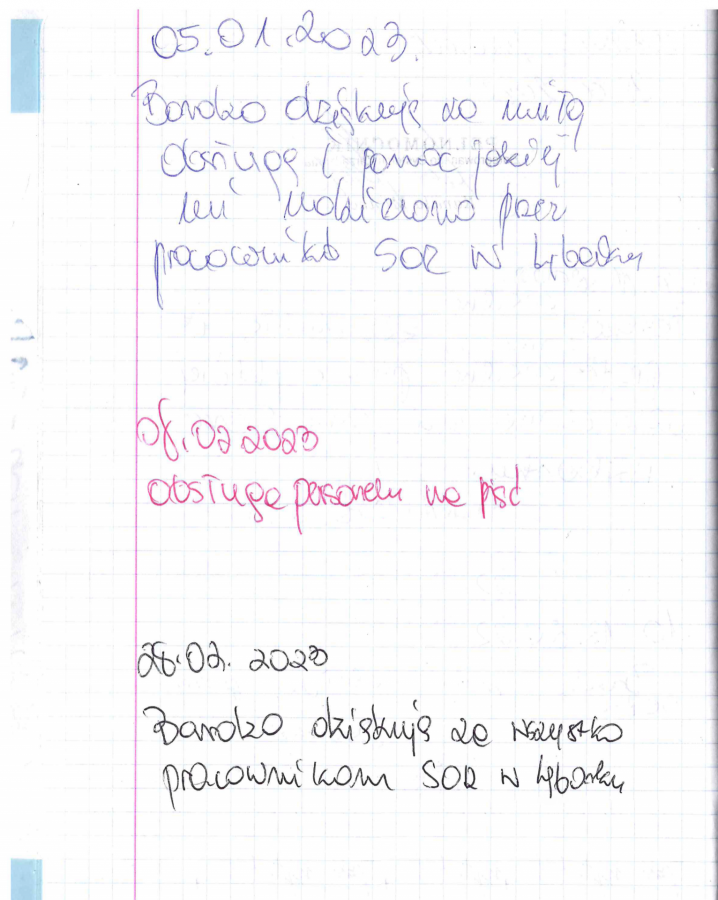 05.01.2023.
Bardzo dziękuję za miłą
obsługę i pomoc jakiej
mi udzielono przez
pracowników SOR w Lęborku
08.02.2023
obsługa personelu na pięć
28.02.2023
Bardzo dziękuję za wszystko
pracownikom SOR w Lęborku